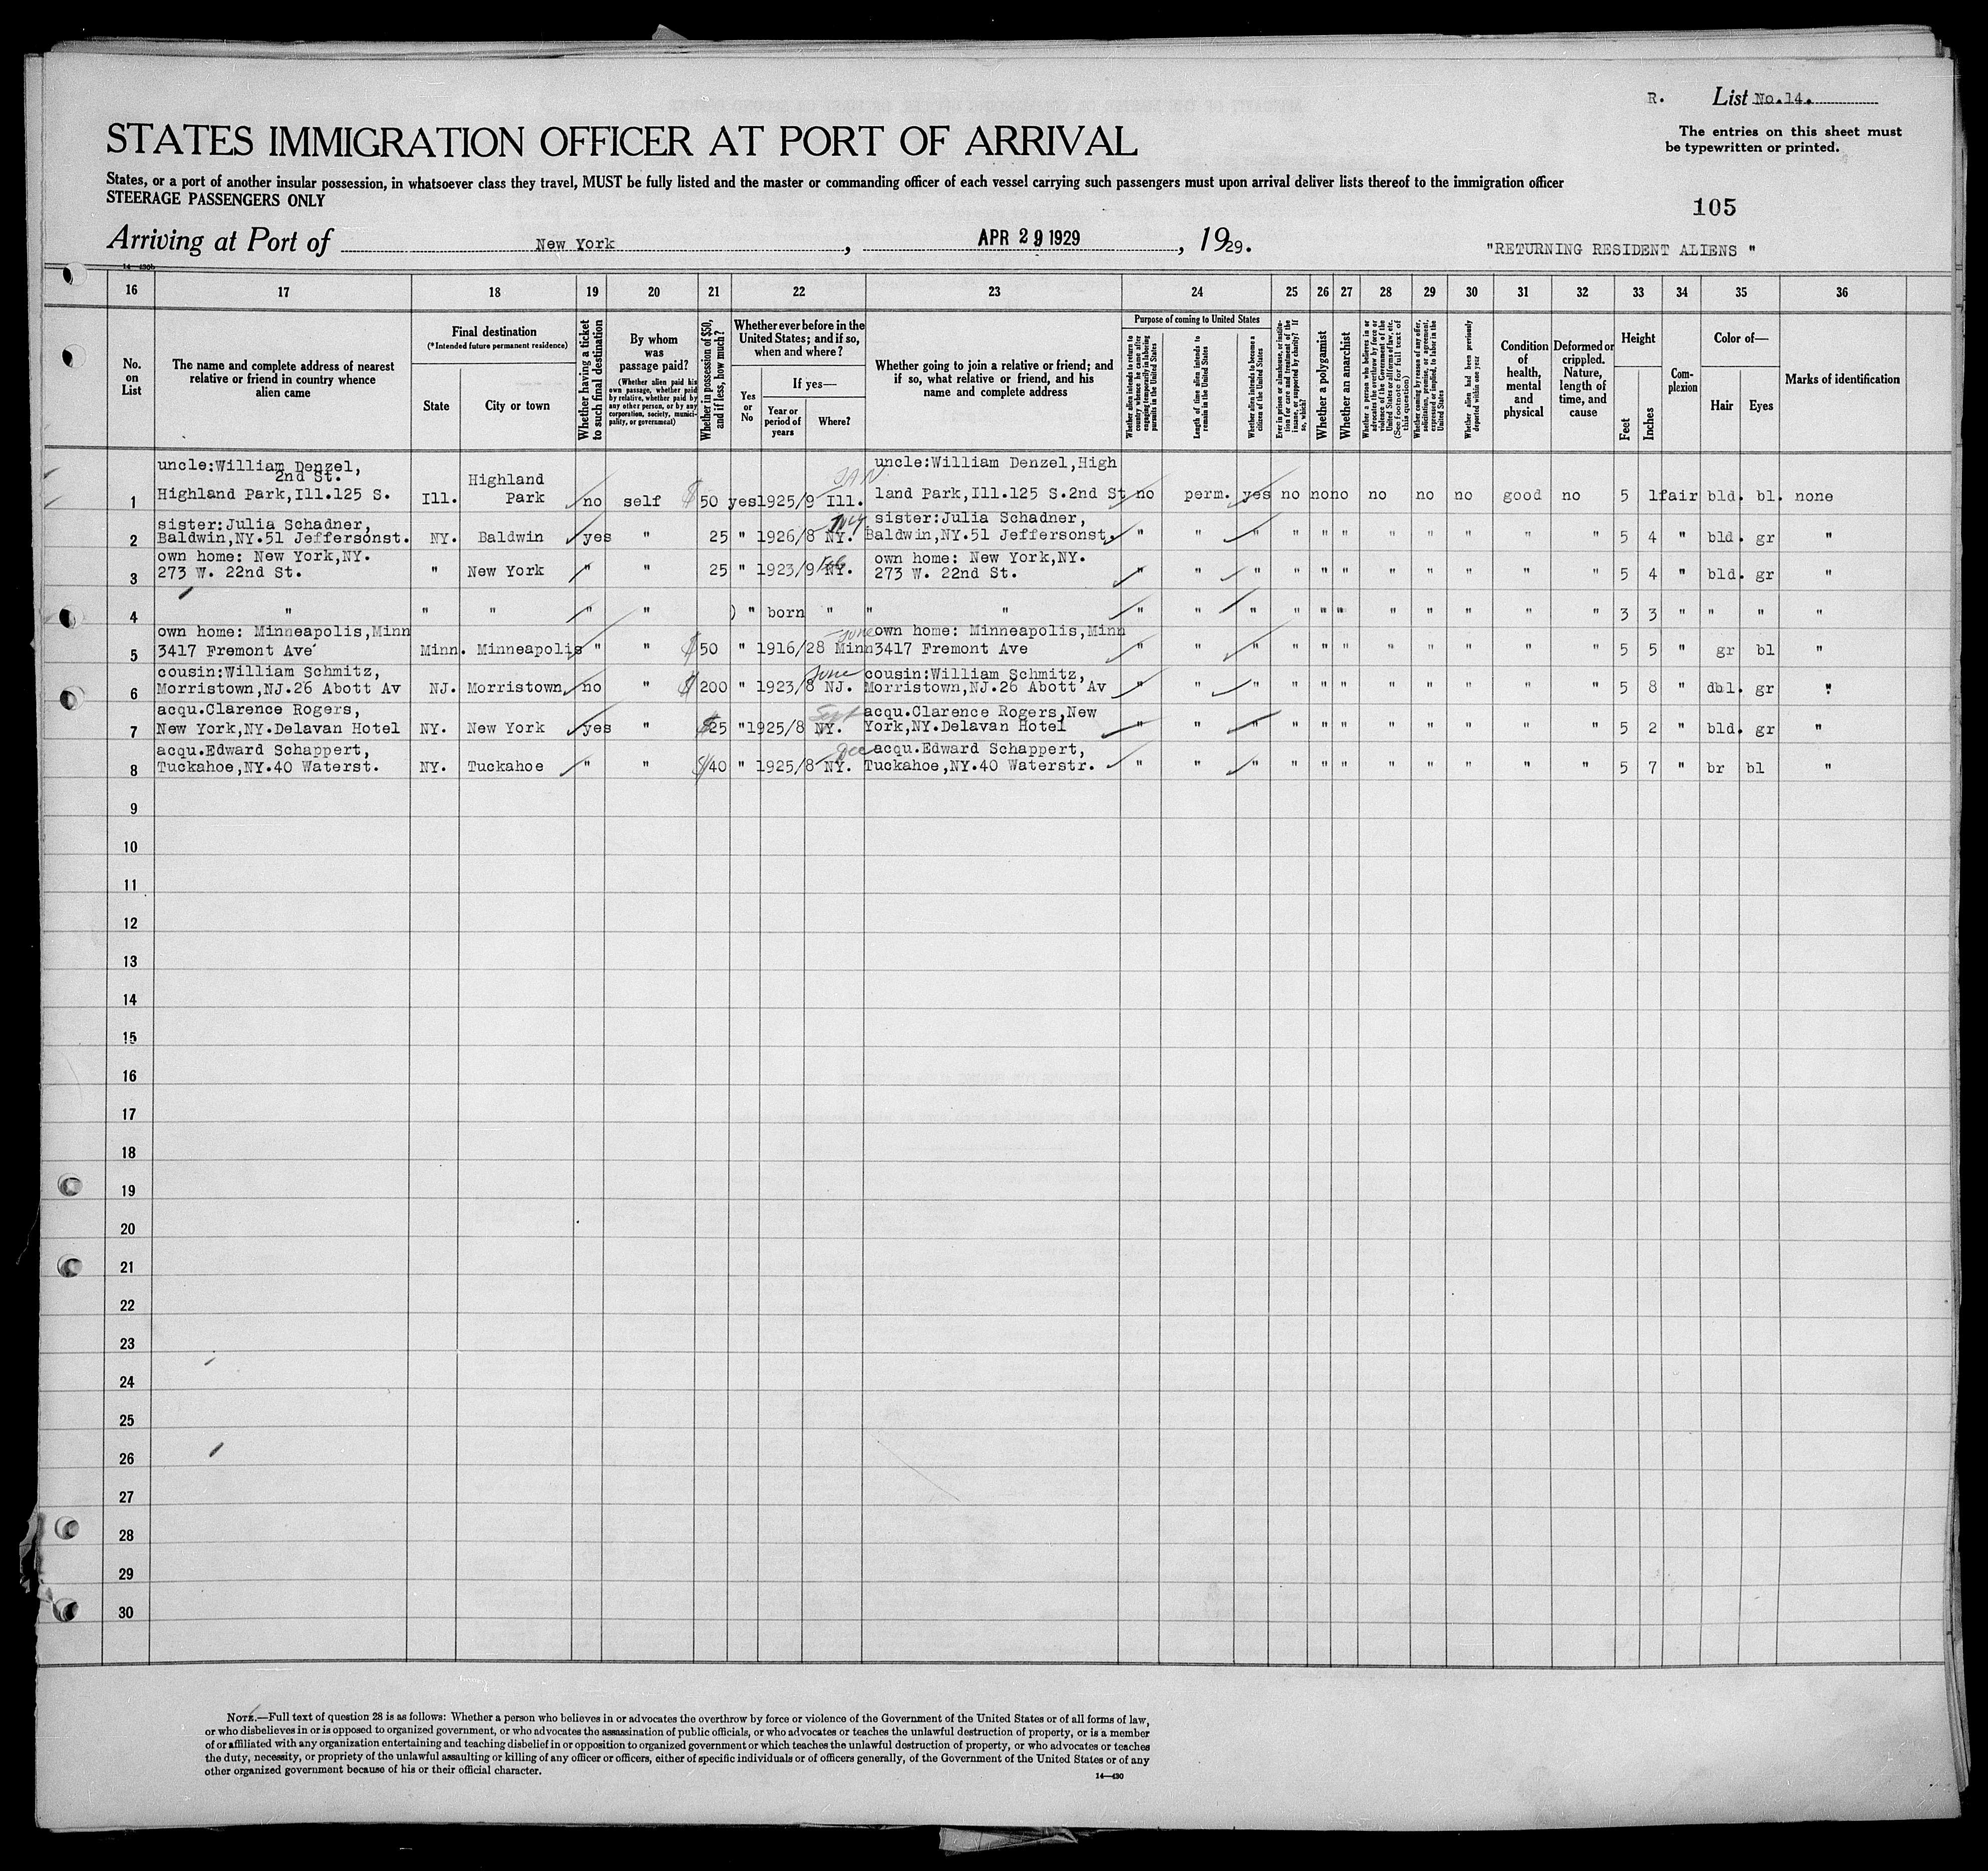 R. List No.14.
The entries on this sheet must
be typewritten or printed.
STATES IMMIGRATION OFFICER AT PORT OF ARRIVAL
States, or a port of another insular possession, in whatsoever class they travel, MUST be fully listed and the master or commanding officer of each vessel carrying such passengers must upon arrival deliver lists thereof to the immigration officer
STEERAGE PASSENGERS ONLY
105
Arriving at Port of New York, APR 29 1929, 1929.
"RETURNING RESIDENT ALIENS "
14—430b
16 17 18 19 20 21 22 23 24 25 26 27 28 29 30 31 32 33 34 35 36
No.
on
List
The name and complete address of nearest
relative or friend in country whence
alien came
Final destination
(*Intended future permanent residence)
State
City or town
Whether having a ticket
to such final destination
By whom
was
passage paid?
(Whether alien paid his
own passage, whether paid
by relative, whether paid by
any other person, or by any
corporation, society, munici-
pality, or government)
Whether in possession of $50,
and if less, how much?
Whether ever before in the
United States; and if so,
when and where?
Yes
or
No
If yes—
Year or
period of
years
Where?
Whether going to join a relative or friend; and
if so, what relative or friend, and his
name and complete address
Purpose of coming to United States
Whether alien intends to return to
country whence he came after
engaging temporarily in laboring
pursuits in the United States
Length of time alien intends to
remain in the United States
Whether alien intends to become a
citizen of the United States
Ever in prison or almshouse or institu-
tion for care and treatment of the
insane, or supported by charity? If
so, which?
Whether a polygamist
Whether an anarchist
Whether a person who believes in or
advocates the overthrow by force or
violence of the Government of the
United States or all forms of law, etc.
(See footnote for full text of
this question)
Whether coming by reason of any offer,
solicitation, promise, or agreement,
expressed or implied, to labor in the
United States
Whether alien had been previously
deported within one year
Condition
of
health,
mental
and
physical
Deformed or
crippled.
Nature,
length of
time, and
cause
Height
Feet
Inches
Com-
plexion
Color of—
Hair
Eyes
Marks of identification
uncle:William Denzel, Highland JAN uncle:William Denzel,High
2nd St.
1 Highland Park,Ill.125 S. Ill. Park no self $ 50 yes 1925/9 Ill. land Park,Ill.125 S.2nd St no perm. yes no no no no no no good no 5 1 fair bld. bl. none
sister:Julia Schadner, sister:Julia Schadner,
2 Baldwin,NY.51 Jeffersonst. NY. Baldwin yes " 25 " 1926/8 NY. Baldwin,NY.51 Jeffersonst. " " " " " " " " " " " 5 4 " bld. gr "
own home: New York,NY. Feb own home: New York,NY.
3 273 W. 22nd St. " New York " " 25 " 1923/9 NY. 273 W. 22nd St. " " " " " " " " " " " 5 4 " bld. gr "
4 " " " " " ) " born " " " " " " " " " " " " " " " 3 3 " " " "
own home: Minneapolis,Minn June own home: Minneapolis,Minn
5 3417 Fremont Ave Minn. Minneapolis " " $ 50 " 1916/28 Minn 3417 Fremont Ave " " " " " " " " " " " 5 5 " gr bl "
cousin:William Schmitz, June cousin:William Schmitz,
6 Morristown,NJ.26 Abott Av NJ. Morristown no " $ 200 " 1923/8 NJ. Morristown,NJ.26 Abott Av " " " " " " " " " " " 5 8 " dbl. gr "
acqu.Clarence Rogers, Sept acqu.Clarence Rogers,New
7 New York,NY.Delavan Hotel NY. New York yes " $25 " 1925/8 NY. York,NY.Delavan Hotel " " " " " " " " " " " 5 2 " bld. gr "
acqu.Edward Schappert, Dec acqu.Edward Schappert,
8 Tuckahoe,NY.40 Waterst. NY. Tuckahoe " " $40 " 1925/8 NY. Tuckahoe,NY.40 Waterstr. " " " " " " " " " " " 5 7 " br bl "
9
10
11
12
13
14
15
16
17
18
19
20
21
22
23
24
25
26
27
28
29
30
NOTE.—Full text of question 28 is as follows: Whether a person who believes in or advocates the overthrow by force or violence of the Government of the United States or of all forms of law,
or who disbelieves in or is opposed to organized government, or who advocates the assassination of public officials, or who advocates or teaches the unlawful destruction of property, or is a member
of or affiliated with any organization entertaining and teaching disbelief in or opposition to organized government or which teaches the unlawful destruction of property, or who advocates or teaches
the duty, necessity, or propriety of the unlawful assaulting or killing of any officer or officers, either of specific individuals or of officers generally, of the Government of the United States or of any
other organized government because of his or their official character.
14—430